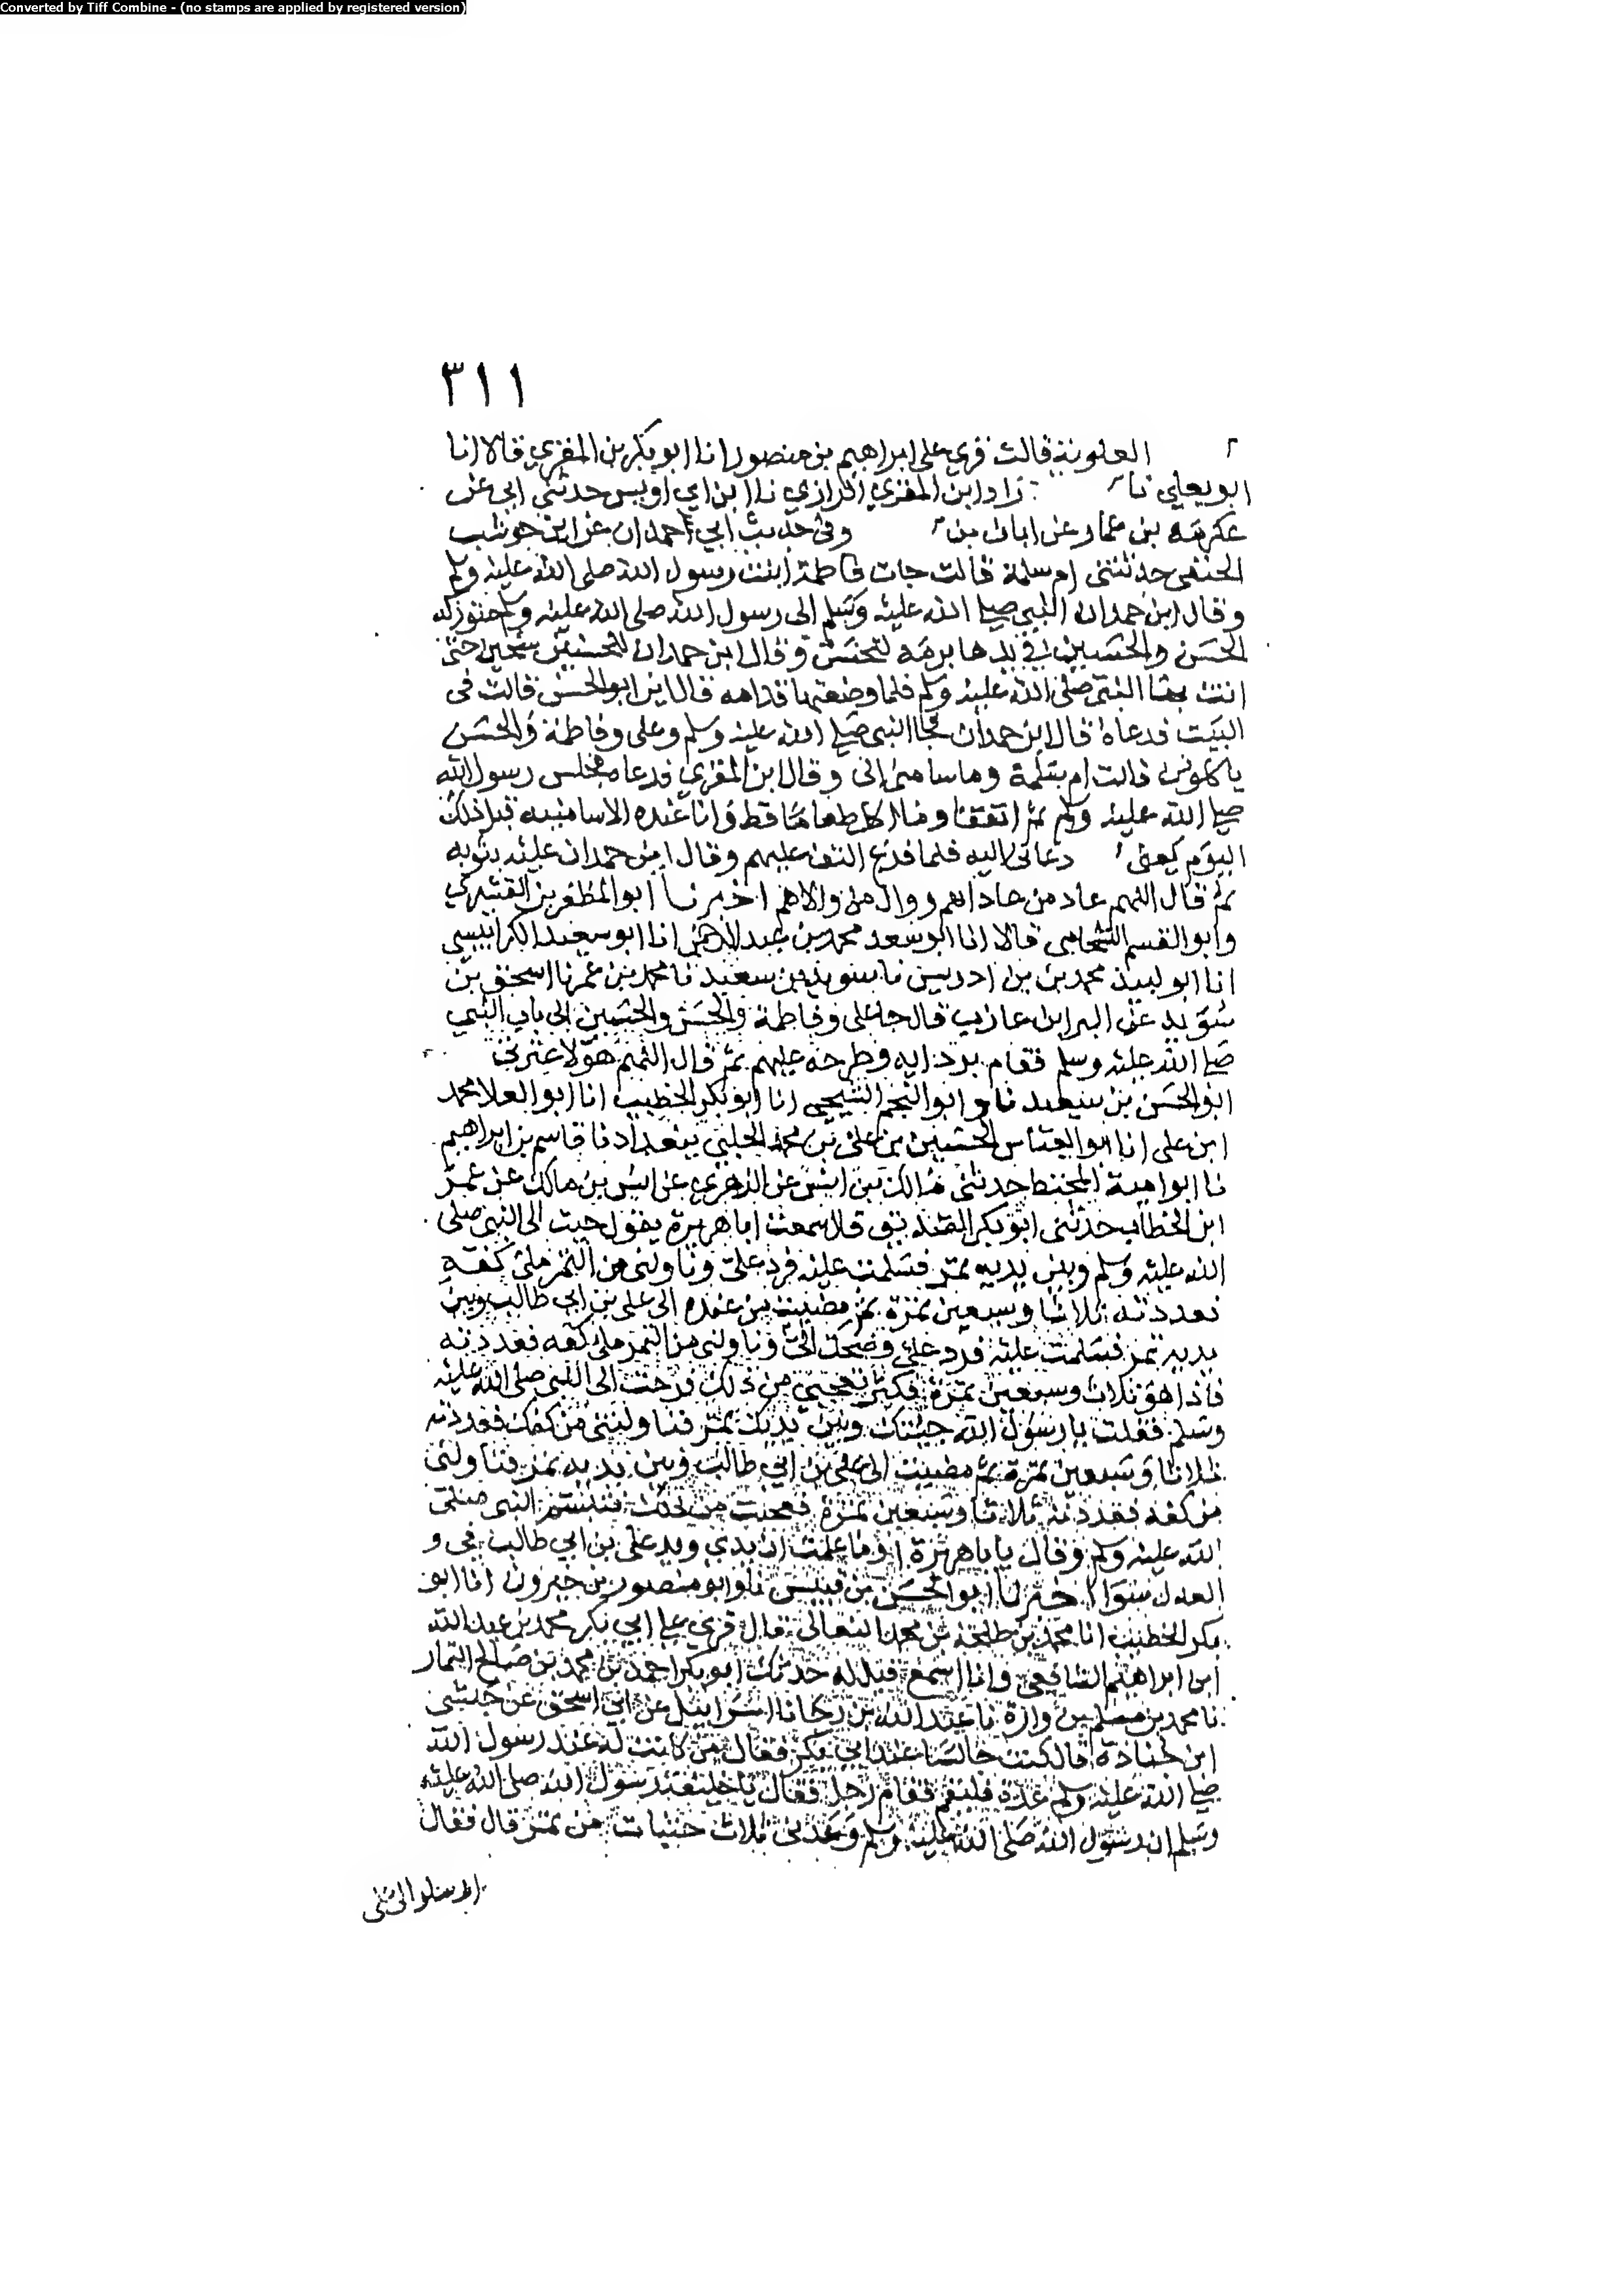 Converted by Tiff Combine - (no stamps are applied by registered version)
٣١١
العلوية قالت قري على ابراهيم بن منصور انا ابو بكر بن المقري قالا انا
ابو يعلي نا زاد ابن المقري الرازي نا ابن ابي اويس حدثني ابي عن
عكرمه بن عمار عن ابان بن وفي حديث ابي احمدان عن ابن حوشب
الحنفي حدثتني ام سلمة قالت جات فاطمة ابنت رسول الله صلى الله عليه وسلم
وقال ابن حمدان النبي صلى الله عليه وسلم الى رسول الله صلى الله عليه وسلم متوركه
الحسن والحسين في يدها برمه للحسن وقال ابن حمدان للحسين سخين حتى
اتت بها النبي صلى الله عليه وسلم فلما وضعتها قدامه قال اين ابو الحسن قالت في
البيت فدعاه قال ابن حمدان فجا النبي صلى الله عليه وسلم وعلى وفاطمة والحسن
ياكلون قالت ام سلمة وما سامني وقال ابن المقري فدعا فجلس رسول الله
صلى الله عليه وسلم ثم وما اكل طعاما قط وانا عنده الا سامنيه قبل ذلك
اليوم يعني دعاني اليه فلما فرغ التف عليهم وقال ابن حمدان عليه بثوبه
ثم قال اللهم عاد من عاداهم ووال من والاهم اخبرنا ابو المظفر بن القشيري
وابو القسم الشحامي قالا انا ابو سعد محمد بن عبد الرحمن انا ابو سعيد الكرابيسي
انا ابو لبيد محمد بن بن ادريس نا سويد بن سعيد نا محمد بن عمر نا اسحق بن
سويد عن البرا بن عازب قال جا على وفاطمة والحسن والحسين الى باب النبي
صلى الله عليه وسلم فقام بردايه وطرحه عليهم ثم قال اللهم هولا عترتي
ابو الحسن بن سعيد نا و ابو النجم الشيحي انا ابو بكر الخطيب انا ابو العلا محمد
ابن على انا ابو العباس الحسين بن على بن محمد الحلبي ببغداد نا قاسم بن ابراهيم
نا ابو امية المختط حدثني مالك بن انس عن الزهري عن انس بن مالك عن عمر
ابن الخطاب حدثني ابو بكر الصديق قال سمعت ابا هريرة يقول جيت الى النبي صلى
الله عليه وسلم وبين يديه تمر فسلمت عليه فرد علي وناولني من التمر ملئ كفه
فعددته ثلاثا وسبعين تمرة ثم مضيت من عنده الى على بن ابي طالب وبين
يديه تمر فسلمت عليه فرد علي وضحك الي وناولني من التمر ملئ كفه فعددته
فاذا هو ثلاث وسبعين تمرة فكثر تعجبي من ذلك فرحت الى النبي صلى الله عليه
وسلم فقلت يا رسول الله جيتك وبين يديك تمر فناولتني من كفك فعددته
ثلاثا وسبعين تمرة ثم مضيت الى على بن ابي طالب وبين يديه تمر فناولني
من كفه فعددته ثلاثا وسبعين تمرة فعجبت من ذلك فتبسم النبي صلى
الله عليه وسلم وقال يا ابا هريرة اوما علمت ان يدي ويد على بن ابي طالب في و
العدل سوا اخبرنا ابو الحسن بن قبيس نا وابو منصور بن خيرون انا ابو
بكر الخطيب انا محمد بن طلحة بن محمد النعالي قال قري على ابي بكر محمد بن عبد الله
ابن ابراهيم الشافعي وانا اسمع قيل له حدثك ابو بكر احمد بن محمد بن صالح التمار
نا محمد بن مسلم بن وارة نا عبد الله بن رجا نا اسرائيل عن ابي اسحق عن حبشي
ابن جنادة قال كنت جالسا عند ابي بكر فقال من كانت له عند رسول الله
صلى الله عليه وسلم عدة فليقم فقام رجل فقال يا خليفة رسول الله صلى الله عليه
وسلم ان رسول الله صلى الله عليه وسلم وعدني ثلاث حثيات من تمر قال فقال
ارسلوا الى على